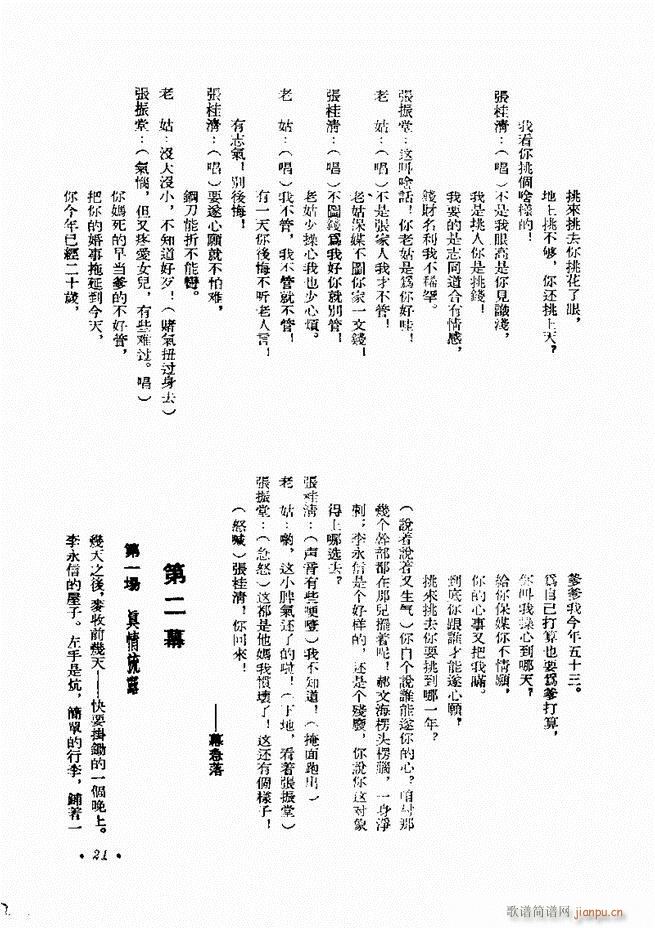 挑來挑去你挑花了眼，
地上挑不够，你还挑上天？
我看你挑個啥樣的！
張桂清：（唱）不是我眼高是你見識淺，
我是挑人你是挑錢！
我要的是志同道合有情感，
錢財名利我不稀罕。
張振堂：这叫啥話！你老姑是爲你好哇！
老　姑：（唱）不是張家人我才不管！
老姑保媒不圖你家一文錢！
張桂清：（唱）不圖錢爲我好你就別管！
老姑少操心我也少心煩。
老　姑：（唱）我不管，我不管就不管！
有一天你後悔不听老人言！
有志氣！別後悔！
張桂清：（唱）要遂心願就不怕难，
鋼刀能折不能彎。
老　姑：沒大沒小，不知道好歹！（賭氣扭过身去）
張振堂：（氣惱，但又疼愛女兒，有些难过。唱）
你媽死的早当爹的不好管，
把你的婚事拖延到今天，
你今年已經二十歲，
爹爹我今年五十三。
爲自己打算也要爲爹打算，
你叫我操心到哪天？
給你保媒你不情願，
你的心事又把我瞞。
到底你跟誰才能遂心願？
挑來挑去你要挑到哪一年？
（說着說着又生气）你自个說誰能遂你的心？咱村那
幾个幹部都在那兒擺着呢！郝文海楞头楞腦，一身淨
刺；李永信是个好样的，还是个殘廢，你說你这对象
得上哪选去？
張桂清：（声音有些哽噎）我不知道！（掩面跑出）
老　姑：喲，这小脾氣还了的啦！（下地，看着張振堂）
張振堂：（急怒）这都是他媽我慣壞了！这还有個樣子！
（怒喊）張桂清！你回來！
——幕急落
第二幕
第一場　眞情流露
幾天之後，麥收前幾天——快要掛鋤的一個晚上。
李永信的屋子。左手是炕，簡單的行李，鋪着一
·21·
歌谱简谱网
jianpu.cn